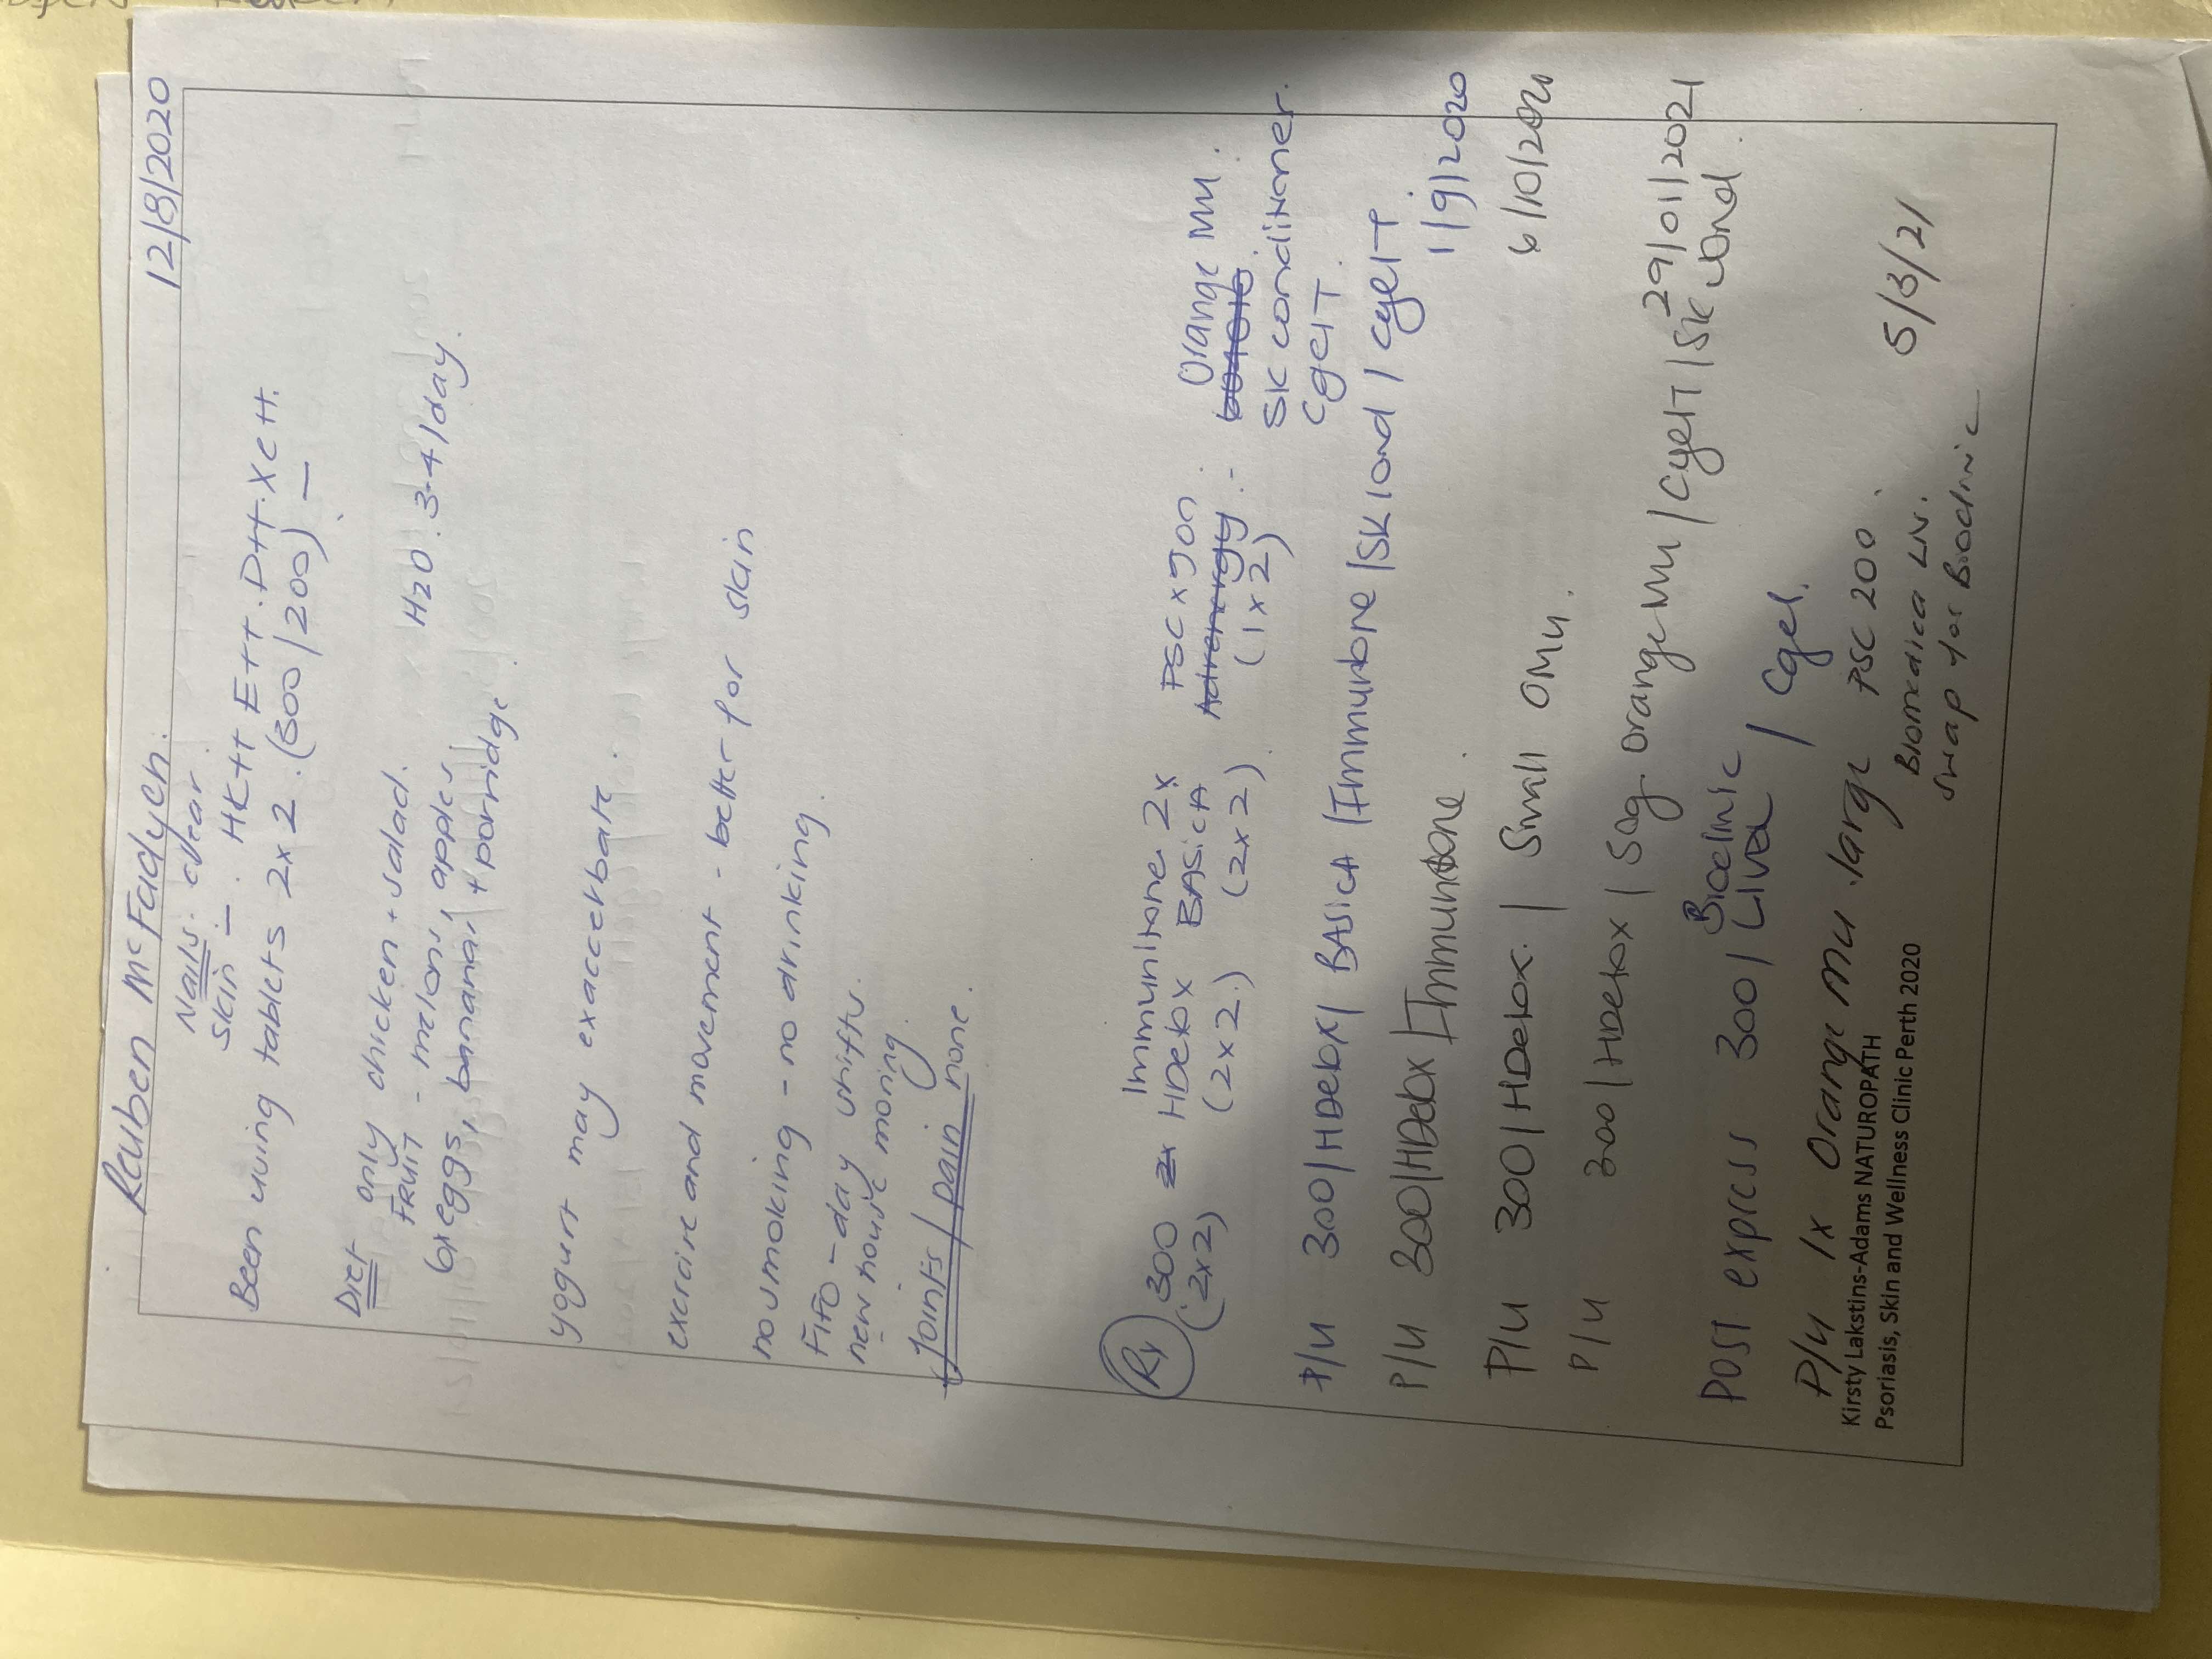 Reuben McFadyen. 12/8/2020
Nails: clear.
Skin - HK++ E++. D++. XCH.
Been using tablets 2x2. (300/200) -
Diet only chicken + salad. H2O: 3-4/day.
FRUIT - melons, apples,
6x eggs, bananas, + porridge.
yogurt may exaccerbate.
exercise and movement - better for skin
no smoking - no drinking.
FIFO - day shifts.
new house moring.
Joints / pain none.
Immunitone 2x PSC x Jon Orange MU.
Rx 300 HDetox BASICA Adrenergy. -
(2x2) (2x2.) (2x2) (1x2) SK conditioner.
CgelT.
P/U 300/HDetox/ BASICA /Immunitone /SK Cond / CgelT
P/U 300/HDetox /Immunitone. 1/9/2020
P/U 300/HDetox. / Small OMU. 6/10/2020
P/U 300/HDetox / 50g orange MU / CgelT /SK Cond. 29/01/2021
POST express 300/ Bioclinic Liver / Cgel.
P/U 1x Orange MU. large PSC 200. 5/3/21
Biomedica LIV.
Swap for Bioclinic
Kirsty Lakstins-Adams NATUROPATH
Psoriasis, Skin and Wellness Clinic Perth 2020